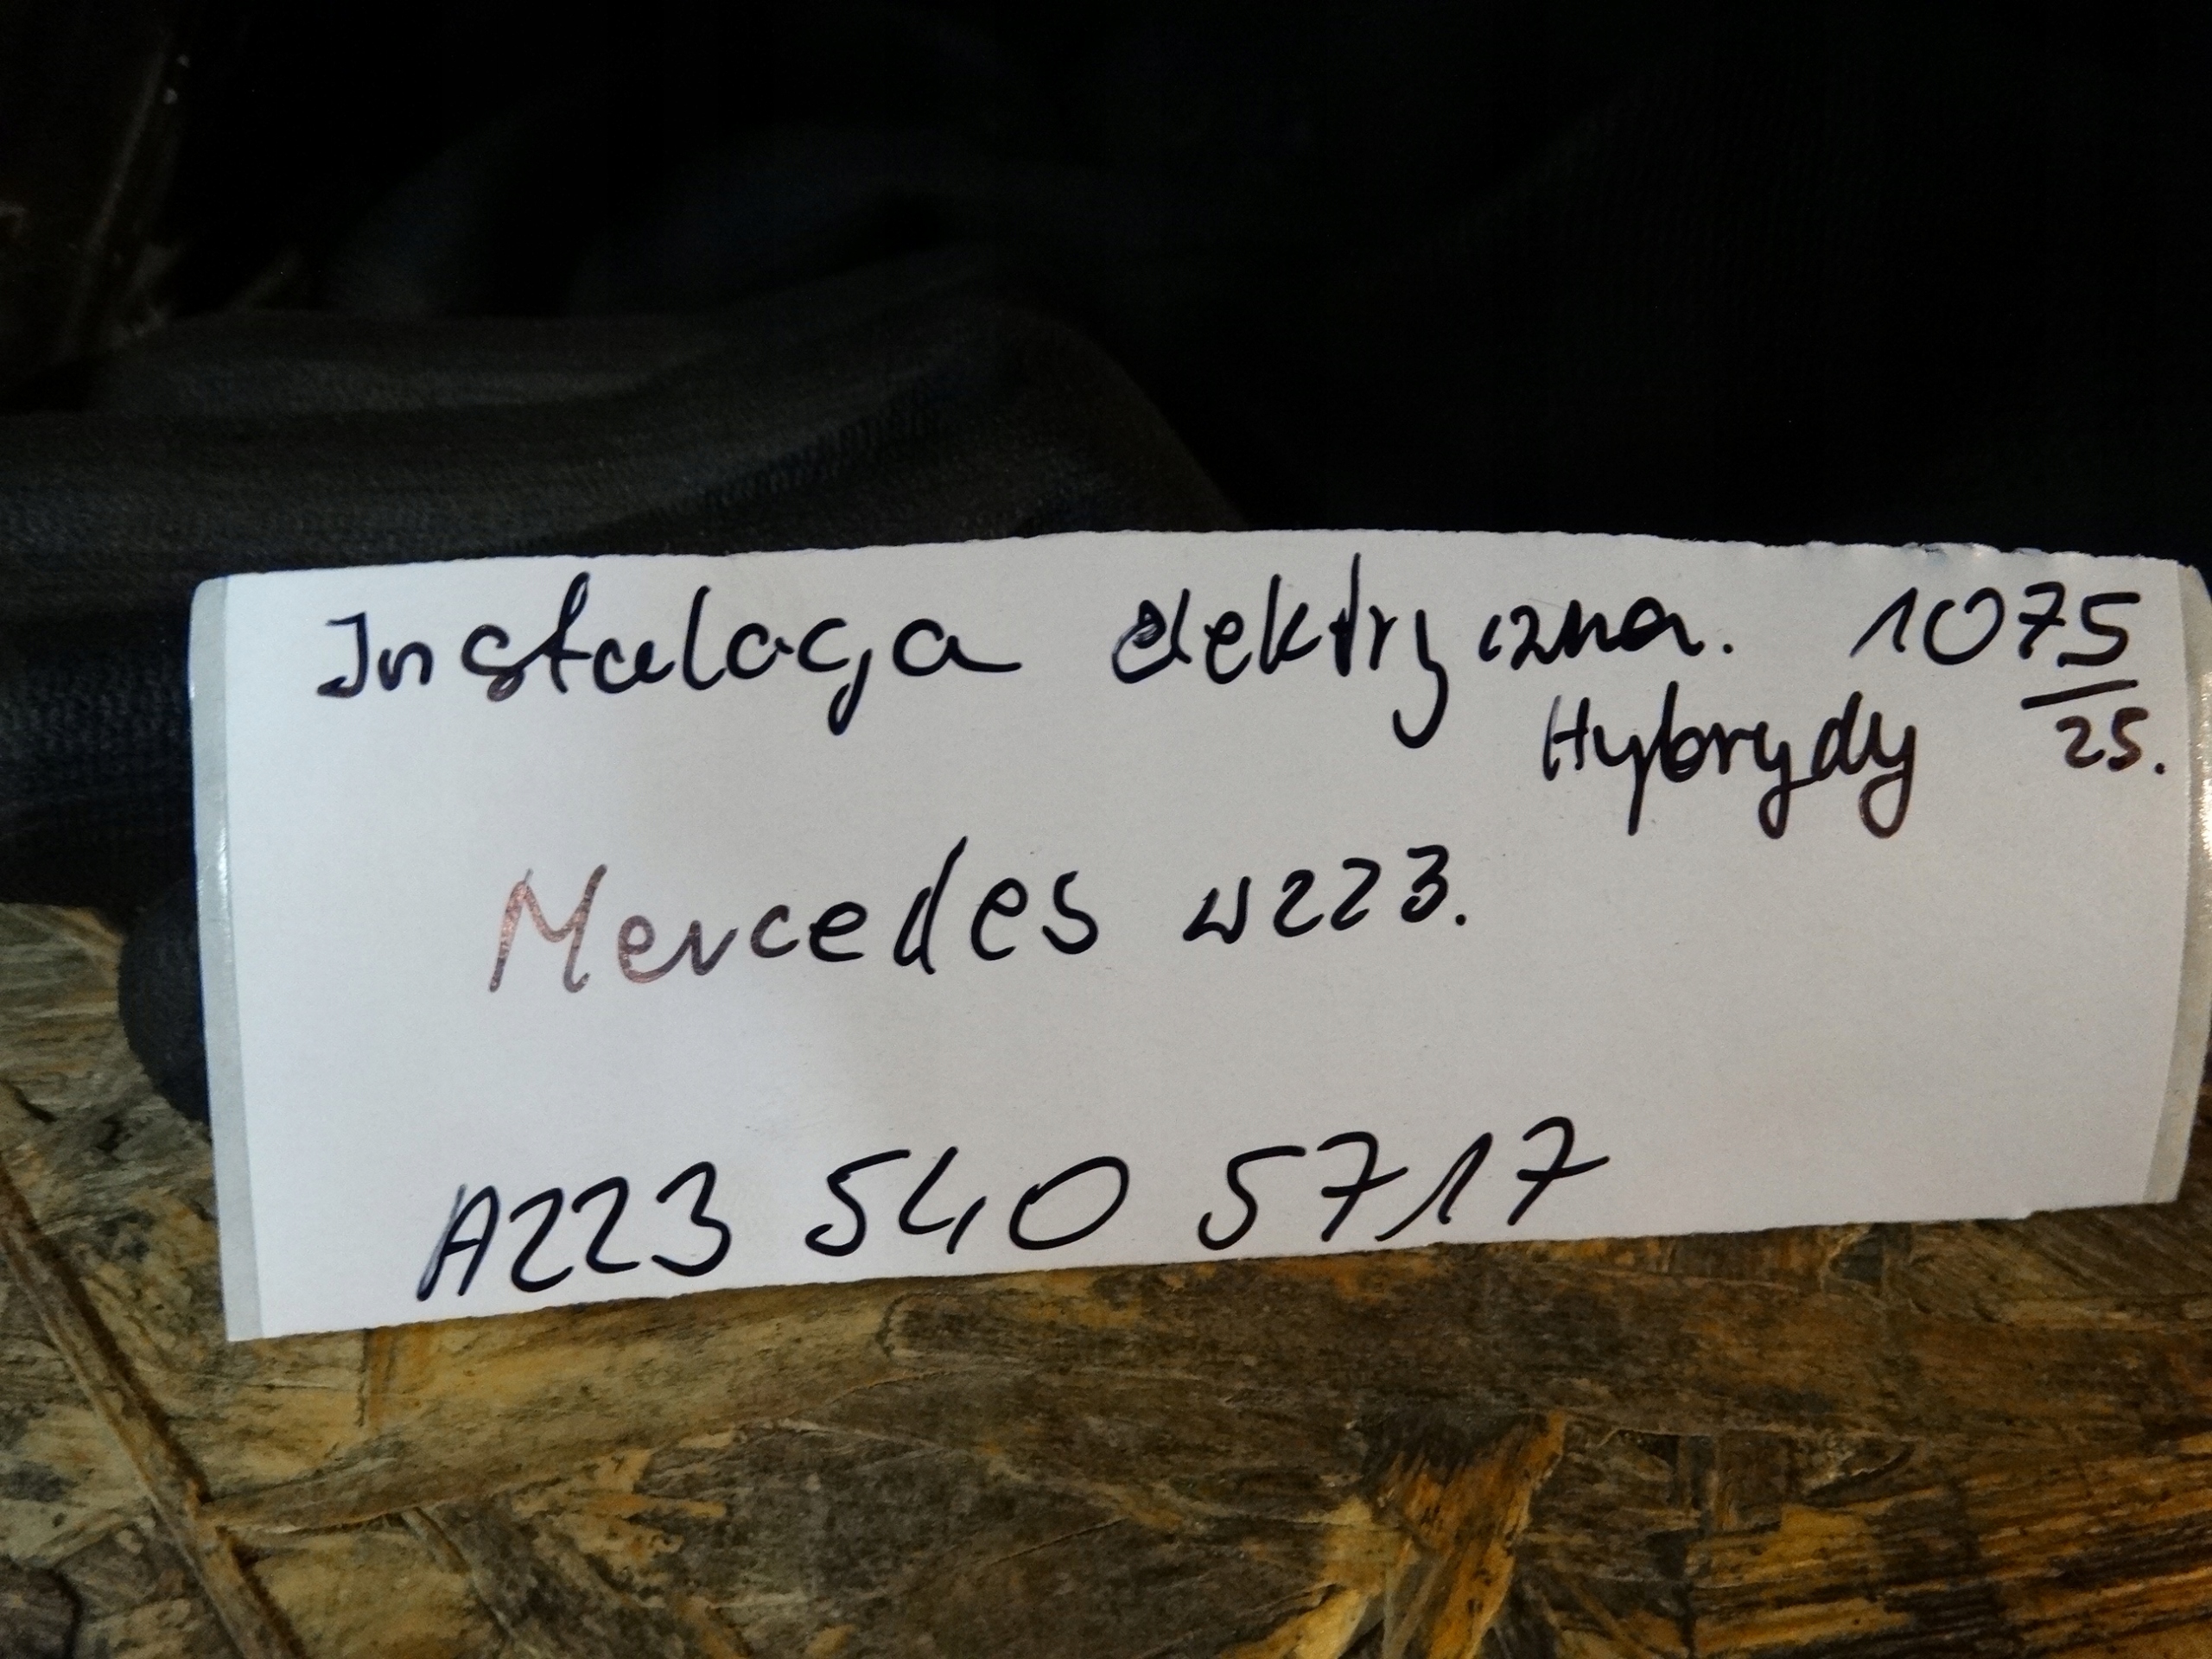 Instalacja elektryczna. 1075/25.
Hybrydy
Mercedes w223.
A223 540 5717